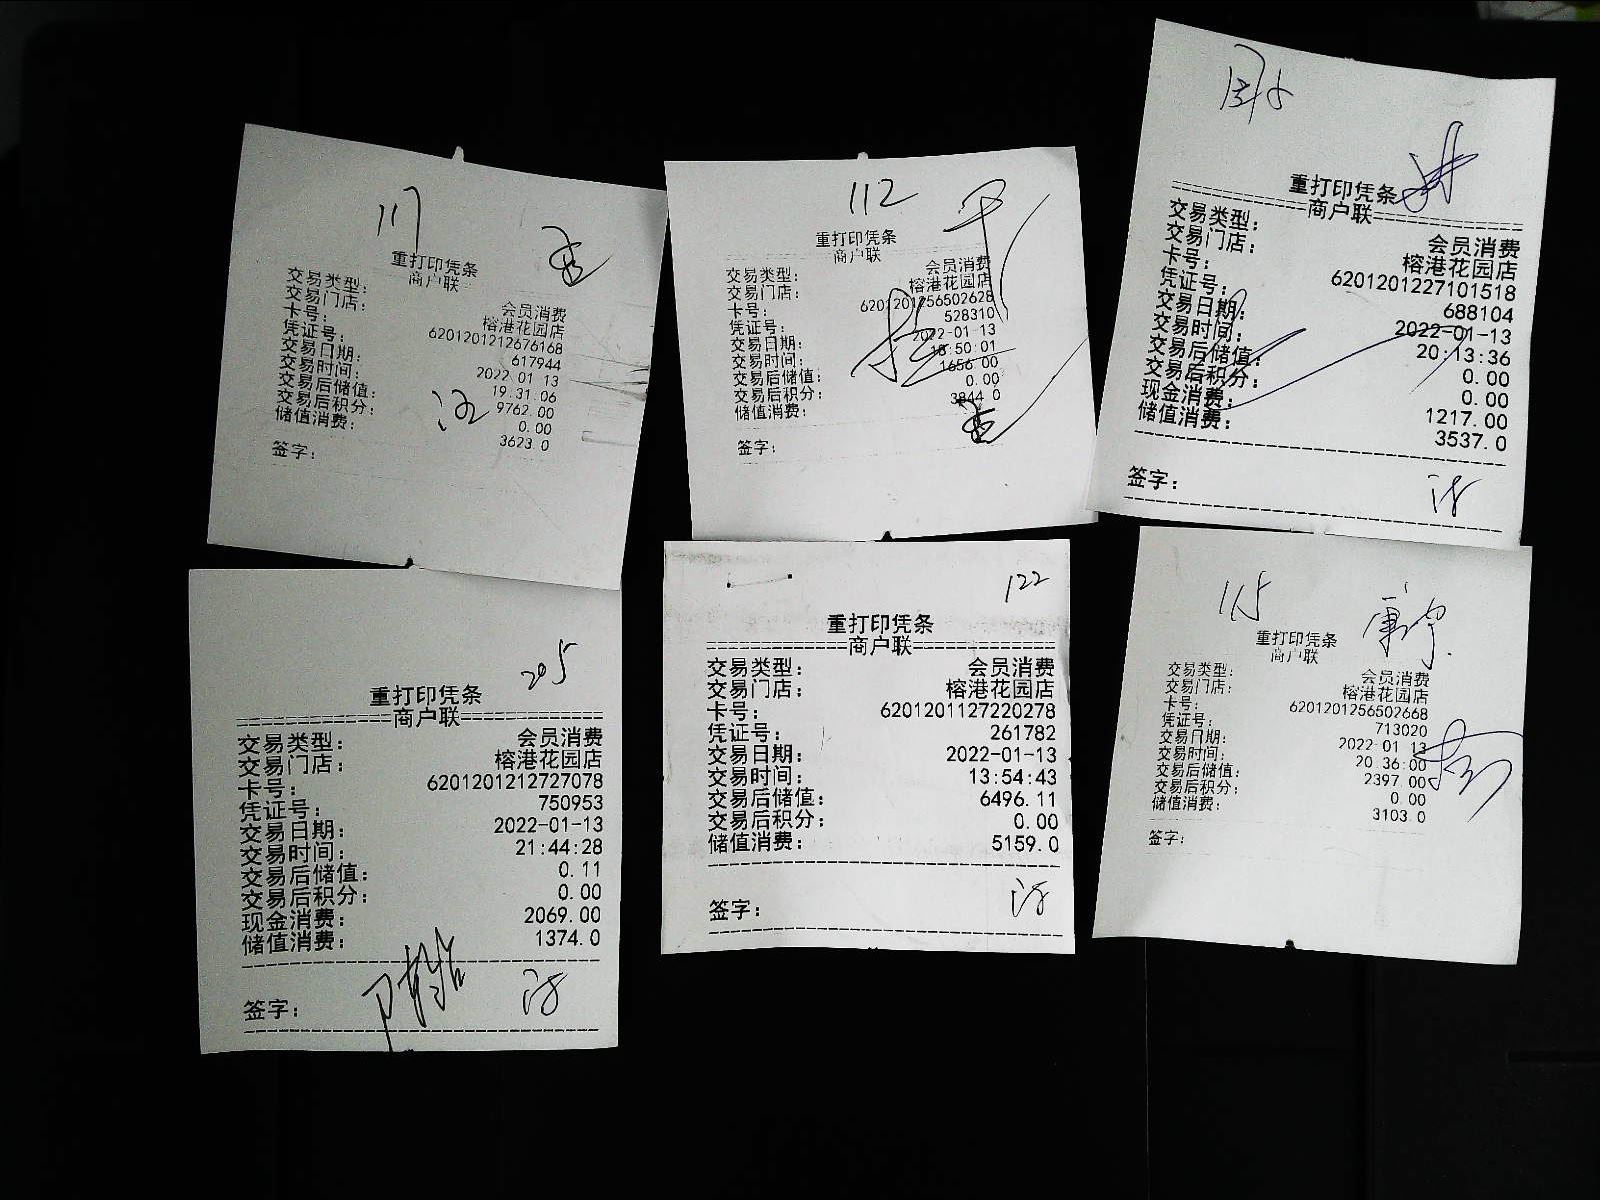 重打印凭条
商户联
交易类型: 会员消费
交易门店: 榕港花园店
卡号: 6201201212676168
凭证号: 617944
交易日期: 2022 01 13
交易时间: 19.31.06
交易后储值: 9762.00
交易后积分: 0.00
储值消费: 3623.0
签字:
112
重打印凭条
商户联
交易类型: 会员消费
交易门店: 榕港花园店
卡号: 6201201256502628
凭证号: 528310
交易日期: 2022-01-13
交易时间: 18:50:01
交易后储值: 1656.00
交易后积分: 0.00
储值消费: 3844.0
签字:
重打印凭条
商户联
交易类型: 会员消费
交易门店: 榕港花园店
卡号: 6201201227101518
凭证号: 688104
交易日期: 2022-01-13
交易时间: 20:13:36
交易后储值: 0.00
交易后积分: 0.00
现金消费: 1217.00
储值消费: 3537.0
签字:
205
重打印凭条
商户联
交易类型: 会员消费
交易门店: 榕港花园店
卡号: 6201201212727078
凭证号: 750953
交易日期: 2022-01-13
交易时间: 21:44:28
交易后储值: 0.11
交易后积分: 0.00
现金消费: 2069.00
储值消费: 1374.0
签字:
122
重打印凭条
商户联
交易类型: 会员消费
交易门店: 榕港花园店
卡号: 6201201127220278
凭证号: 261782
交易日期: 2022-01-13
交易时间: 13:54:43
交易后储值: 6496.11
交易后积分: 0.00
储值消费: 5159.0
签字:
115
重打印凭条
商户联
交易类型: 会员消费
交易门店: 榕港花园店
卡号: 6201201256502668
凭证号: 713020
交易日期: 2022 01 13
交易时间: 20.36:00
交易后储值: 2397.00
交易后积分: 0.00
储值消费: 3103.0
签字: